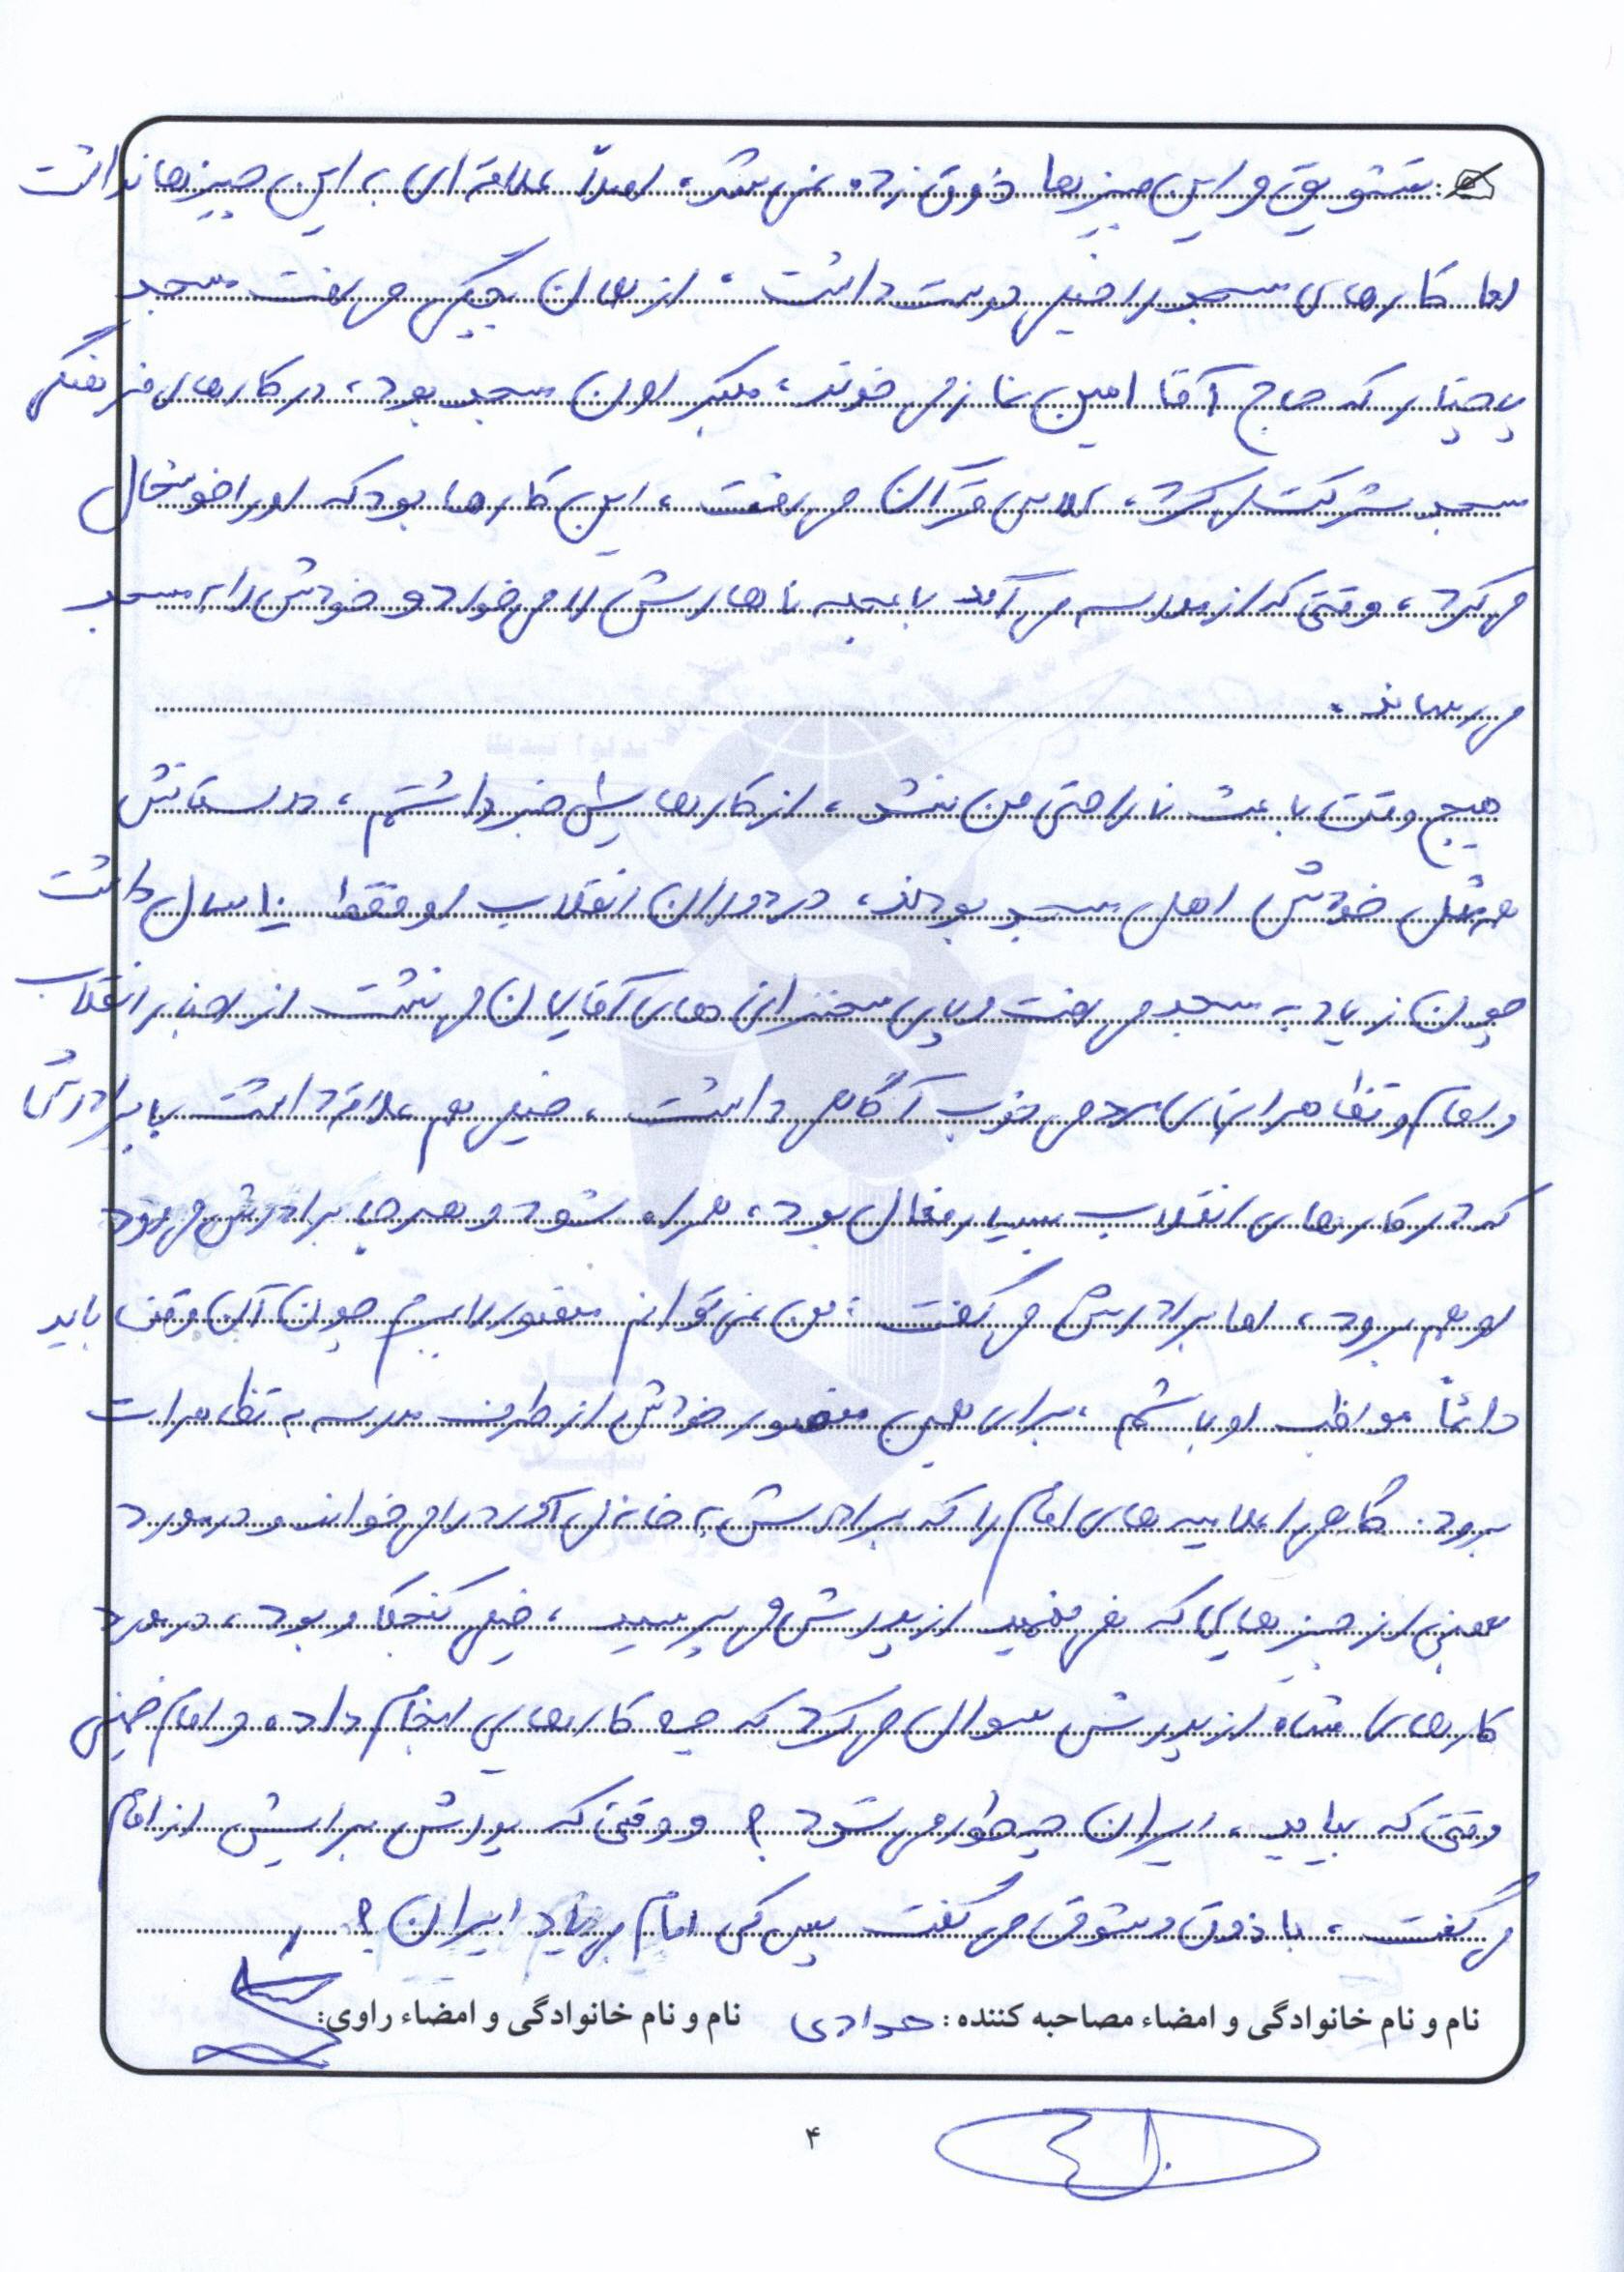 تشویق و این چیزها ذوق زده نمی شد، اصلاً علاقه ای به این چیزها نداشت
اما کارهای مسجد را خیلی دوست داشت، از همان بچگی می رفت مسجد
پاچنار که حاج آقا امین نماز می خوند، مکبر اون مسجد بود، در کارهای فرهنگی
مسجد شرکت می کرد، کلاس قرآن می رفت، این کارها بود که او را خوشحال
می کرد، وقتی که از مدرسه می آمد با عجله ناهارش را می خورد و خودش را به مسجد
می رساند.
هیچ وقت باعث ناراحتی من نشد، از کارهایش خبر داشتم، دوستانش
هم مثل خودش اهل مسجد بودند، در دوران انقلاب او فقط ۱۰ سال داشت
چون زیاد به مسجد می رفت و پای سخنرانی های آقایان می نشست از اخبار انقلاب
و امام و تظاهراتهای مردمی خوب آگاهی داشت، خیلی هم علاقه داشت با برادرش
که در کارهای انقلاب بسیار فعال بود، همراه شود و هر جا برادرش می رود
او هم برود، اما برادرش می گفت: من نمی توانم منصور را ببرم چون آن وقت باید
دائماً مواظب او باشم، برای همین منصور خودش از طرف مدرسه به تظاهرات
برود. گاهی اعلامیه های امام را که برادرش به خانه می آورد را می خواند و در مورد
بعضی از چیزهایی که نمی فهمید از پدرش می پرسید، خیلی کنجکاو بود، در مورد
کارهای شاه از پدرش سوال می کرد که چه کارهایی انجام داده و امام خمینی
وقتی که بیاید، ایران چه طور می شود؟ و وقتی که پدرش برایش از امام
می گفت، با ذوق و شوق می گفت پس کی امام میاید ایران؟
نام و نام خانوادگی و امضاء مصاحبه کننده: نام و نام خانوادگی و امضاء راوی:
۴